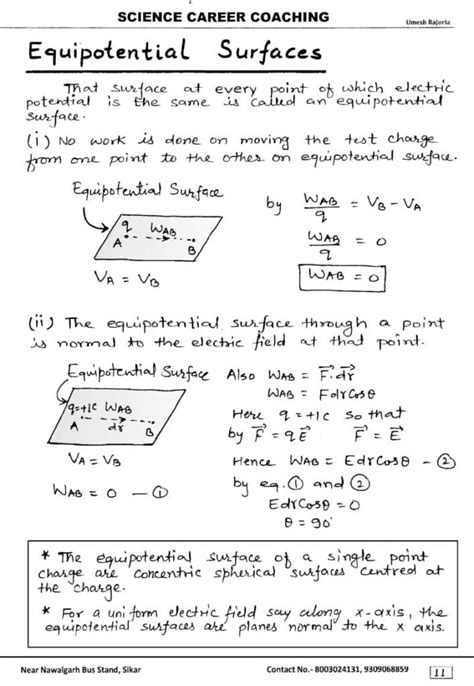 SCIENCE CAREER COACHING
Umesh Rajoria
Equipotential Surfaces
That surface at every point of which electric
potential is the same is called an equipotential
surface.
(i) No work is done on moving the test charge
from one point to the other on equipotential surface.
Equipotential Surface
q W_AB
A B
V_A = V_B
by W_AB/q = V_B - V_A
W_AB/q = 0
W_AB = 0
(ii) The equipotential surface through a point
is normal to the electric field at that point.
Equipotential Surface
q=+1C W_AB
A dr B
V_A = V_B
W_AB = 0 — ①
Also W_AB = F⃗.dr⃗
W_AB = FdrCosθ
Here q = +1C so that
by F⃗ = qE⃗ F⃗ = E⃗
Hence W_AB = EdrCosθ — ②
by eq. ① and ②
EdrCosθ = 0
θ = 90°
* The equipotential surface of a single point
charge are concentric spherical surfaces centred at
the charge.
* For a uniform electric field say along x-axis, the
equipotential surfaces are planes normal to the x axis.
Near Nawalgarh Bus Stand, Sikar
Contact No.- 8003024131, 9309068859
11